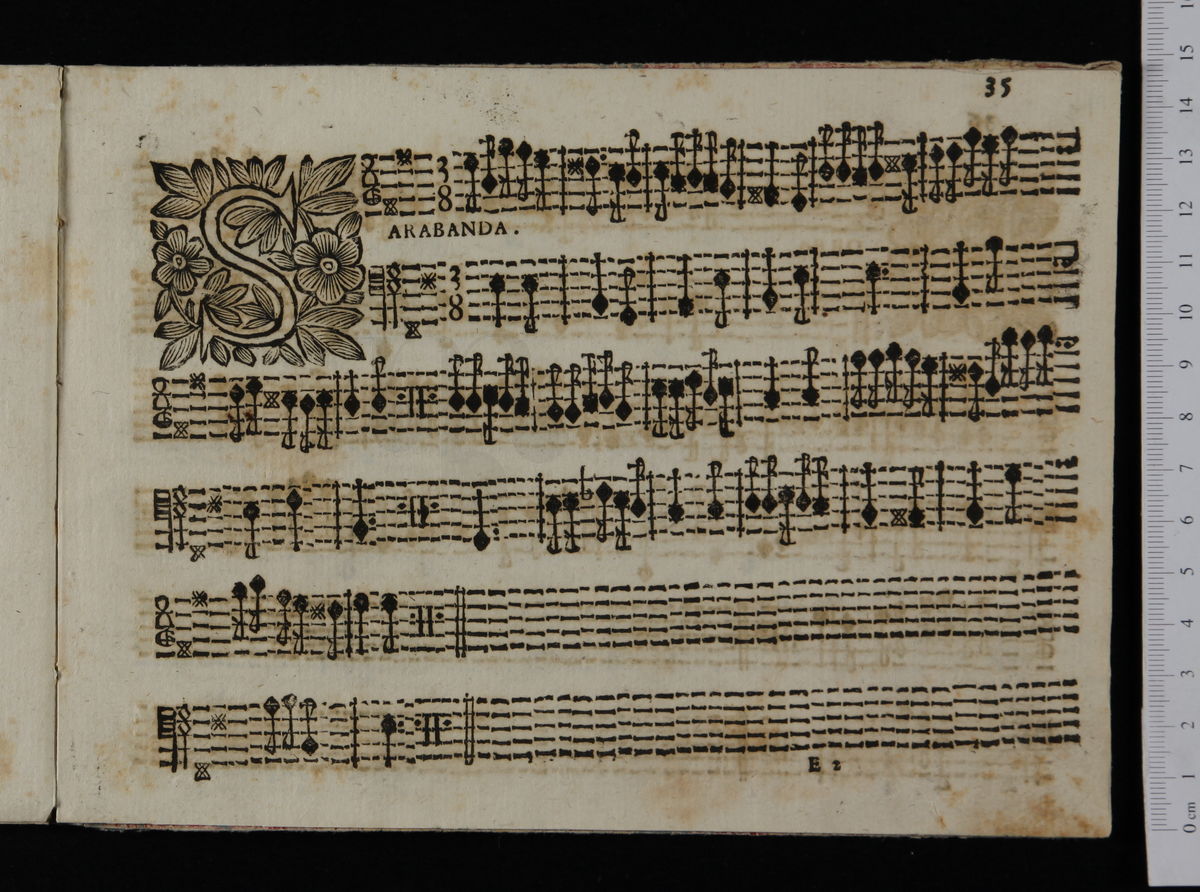 35
S
3
8
ARABANDA.
3
8
E 2
15
14
13
12
11
10
9
8
7
6
5
4
3
2
1
0 cm